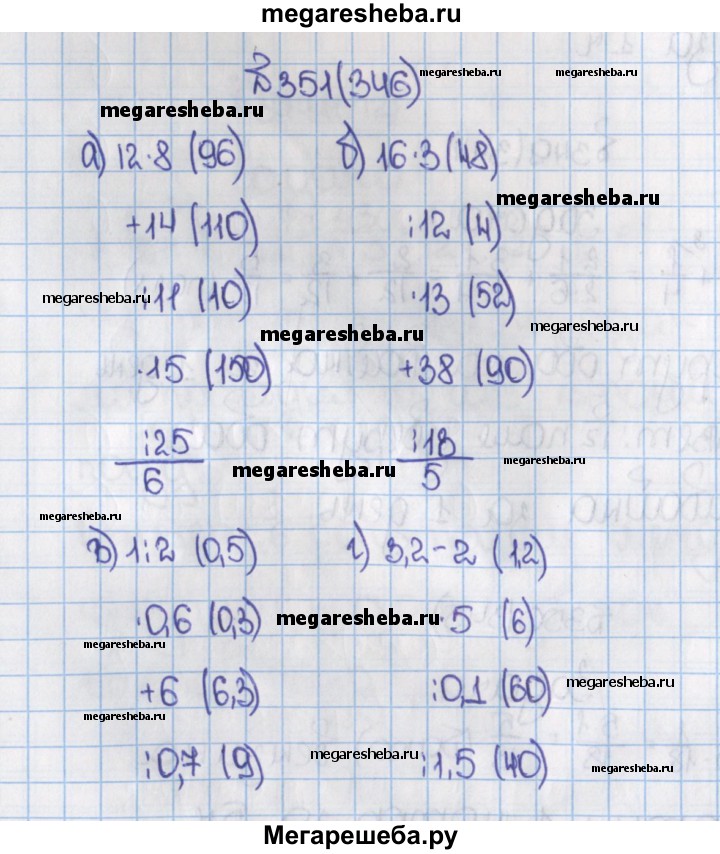 megaresheba.ru
№351(346) megaresheba.ru megaresheba.ru
megaresheba.ru
а) 12·8 (96) б) 16·3 (48)
+14 (110) :12 (4)
megaresheba.ru
megaresheba.ru :11 (10) ·13 (52)
megaresheba.ru megaresheba.ru
·15 (150) +38 (90)
:25 :18
megaresheba.ru megaresheba.ru
6 5
megaresheba.ru
в) 1:2 (0,5) г) 3,2-2 (1,2)
·0,6 (0,3) megaresheba.ru ·5 (6)
megaresheba.ru
+6 (6,3) :0,1 (60) megaresheba.ru
megaresheba.ru
:0,7 (9) megaresheba.ru :1,5 (40) megaresheba.ru
Мегарешеба.ру